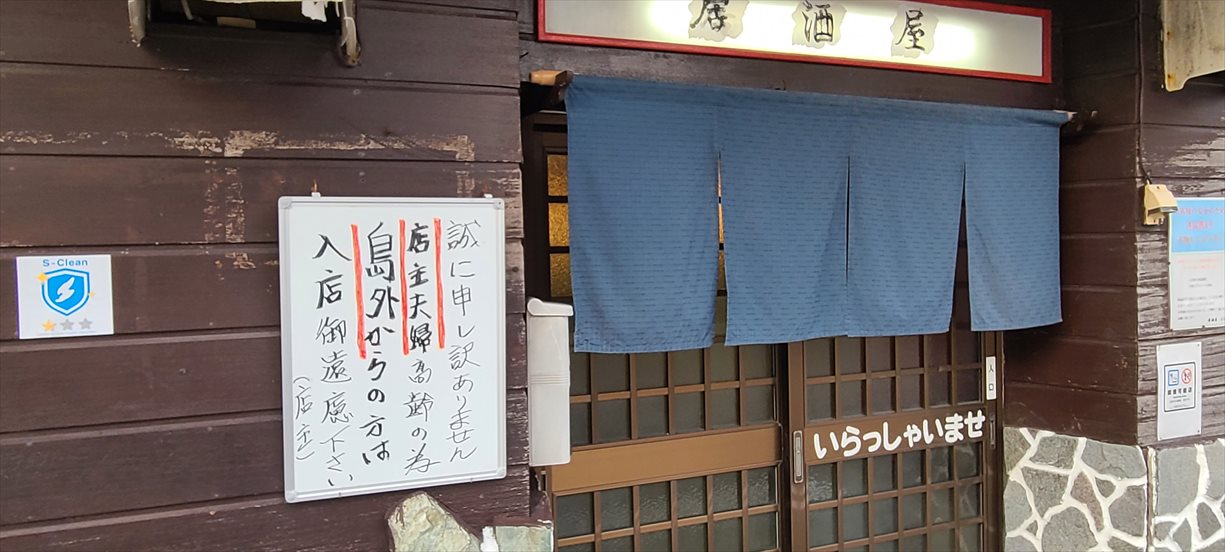 居酒屋
誠に申し訳ありません
店主夫婦高齢の為
島外からの方は
入店御遠慮下さい
(店主)
S-Clean
入口
いらっしゃいませ